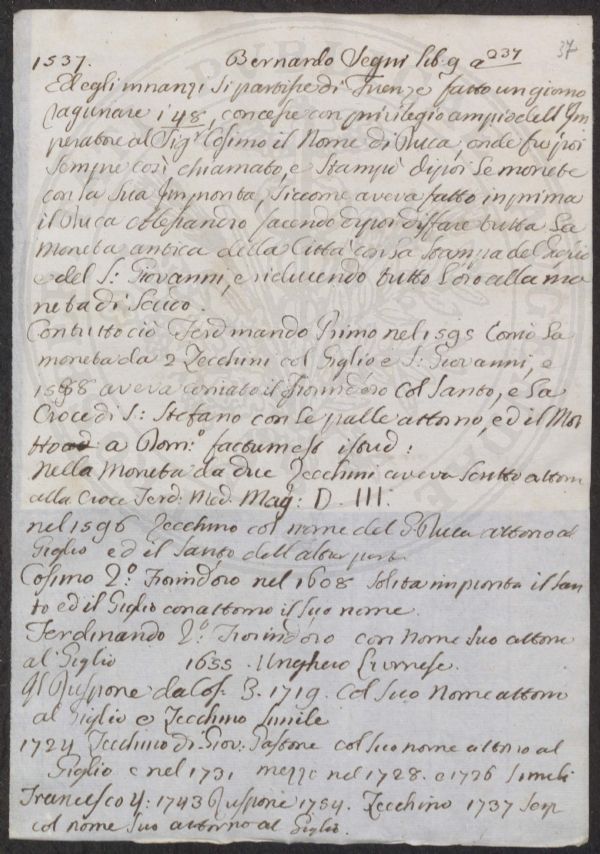 37
1537. Bernardo Segni lib. 9 a 237
Ed egli innanzi si partisse di Firenze fatto un giorno
ragunare i 48, concesse con privilegio ampio dell Im
peratore al Sig.r Cosimo il Nome di Duca, onde fu poi
sempre così chiamato, e stampò dipoi le monete
con la sua Impronta, siccome aveva fatto inprima
il Duca Alessandro facendo dipoi disfare tutta la
moneta antica della Città con la stampa del Giglio
e del S: Giovanni, e riducendo tutto l'oro alla mo
neta di Scudo.
Contuttociò Ferdinando Primo nel 1595 Coniò la
moneta da 2 Zecchini col Giglio e S: Giovanni, e
1588 aveva coniato il Fiorindoro col Santo, e la
Croce di S: Stefano con le palle attorno, ed il Mot
to a Dom.o factum est istud:
Nella Moneta da due Zecchini aveva scritto attorn
alla Croce Ferd: Med. Mag: D. III.
nel 1596 Zecchino col nome del G Duca attorno al
Giglio ed il Santo dell'altra parte
Cosimo 2.o Fiorindoro nel 1608 solita impronta il San
to ed il Giglio con attorno il suo nome
Ferdinando 2.o Fiorindoro con nome suo attorn
al Giglio 1655 Unghero Livornese.
Il Ruspone da Cos. 3. 1719. Col suo Nome attorn
al Giglio e Zecchino simile
1724 Zecchino di Giov: Gastone col suo nome attorno al
Giglio e nel 1731 mezzo nel 1728. e 1726 simili
Francesco 1743 Ruspone 1754. Zecchino 1737
col nome suo attorno al Giglio.